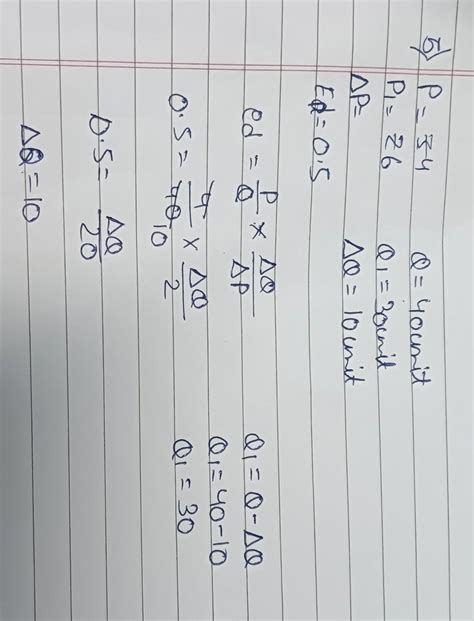 5) P = ₹4 Q = 40unit
P₁ = ₹6 Q₁ = 30unit
ΔP = ΔQ = 10unit
Ed = 0.5
ed = P/Q × ΔQ/ΔP Q₁ = Q - ΔQ
Q₁ = 40 - 10
0.5 = 4/40 10 × ΔQ/2 Q₁ = 30
0.5 = ΔQ/20
ΔQ = 10